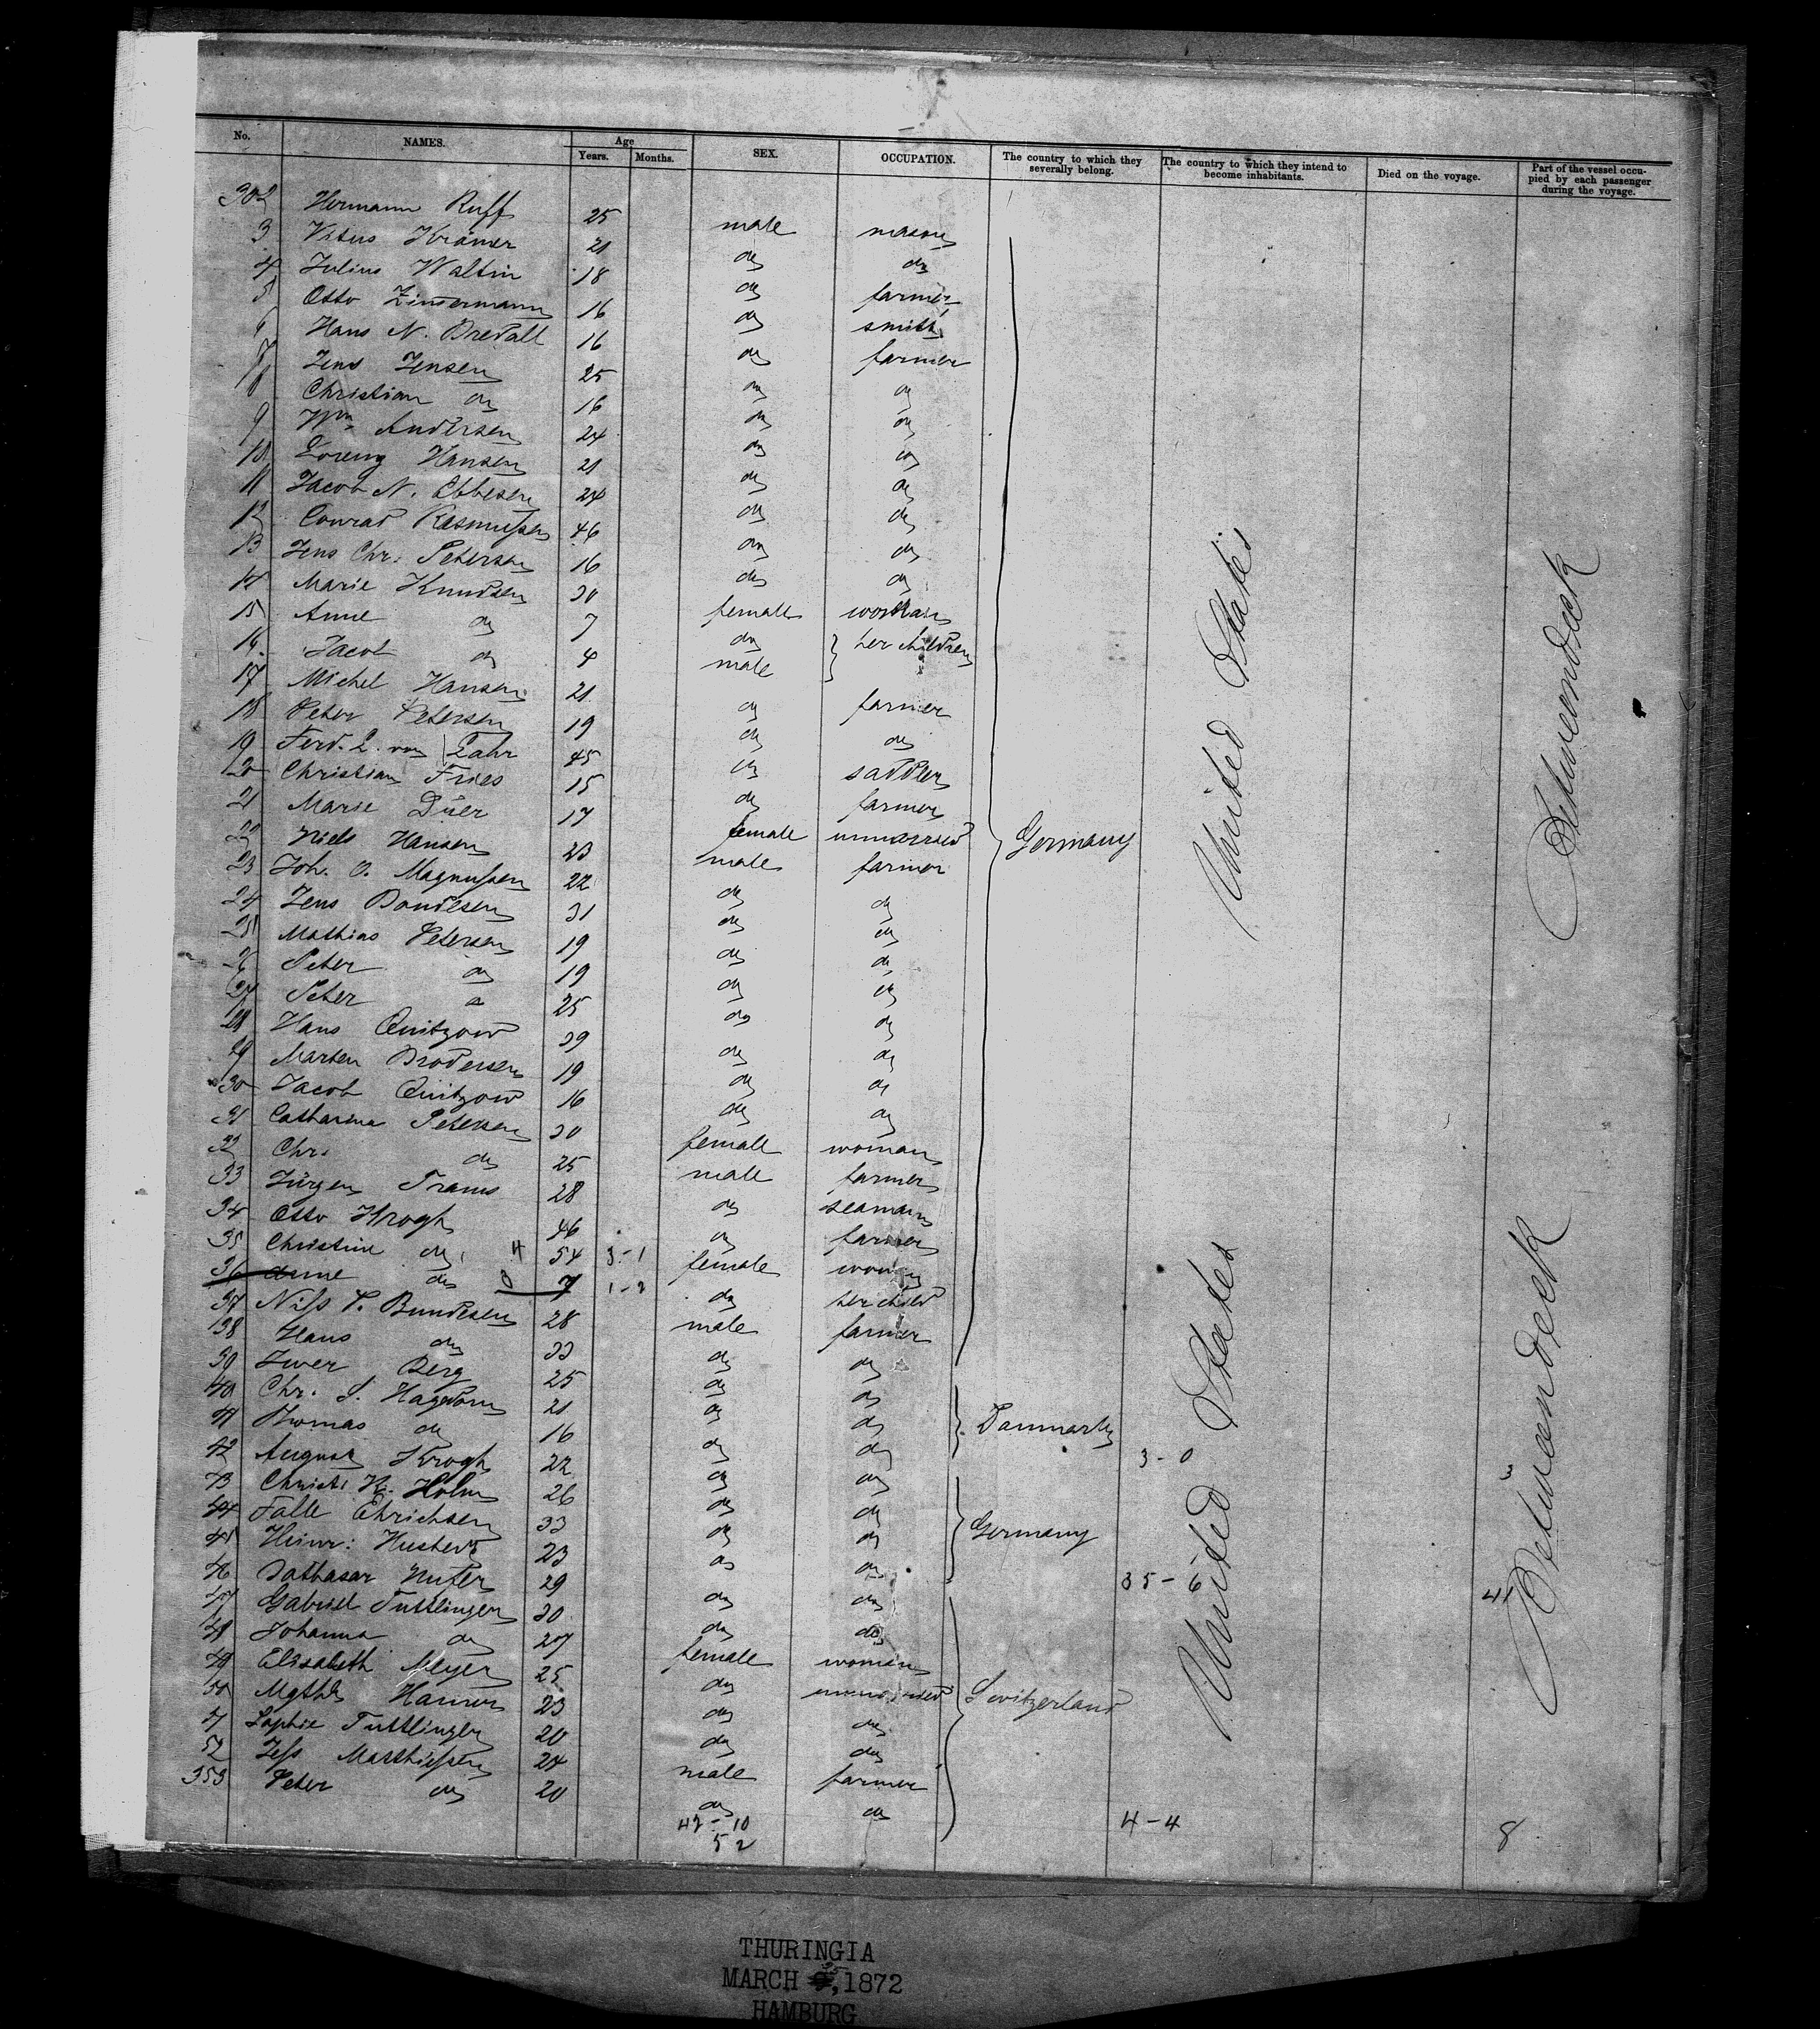 No. NAMES. Age Years. Months. SEX. OCCUPATION. The country to which they severally belong. The country to which they intend to become inhabitants. Died on the voyage. Part of the vessel occupied by each passenger during the voyage.
302 Hermann Ruff 25 male mason
3 Vitus Krämer 21 do do
4 Julius Waltin 18 do farmer
5 Otto Zimermann 16 do smith
6 Hans N. Bredall 16 do farmer
7 Jens Jensen 25 do do
8 Christian do 16 do do
9 Wm Andersen 24 do do
10 Lorenz Hansen 21 do do
11 Jacob N. Ebbesen 24 do do
12 Conrad Rasmussen 46 do do
13 Jens Chr. Petersen 16 do do
14 Marie Knudsen 30 female woman
15 Anne do 7 do her children
16 Jacob do 4 male
17 Michel Hansen 21 do farmer
18 Peter Petersen 19 do do
19 Ferd. L. von Lahr 45 do saddler
20 Christian Fries 15 do farmer
21 Marie Düer 17 female unmarried
22 Niels Hansen 23 male farmer
23 Joh. O. Magnussen 22 do do
24 Jens Bondesen 31 do do
25 Mathias Petersen 19 do do
26 Peter do 19 do do
27 Peter do 25 do do
28 Hans Quitzow 39 do do
29 Marten Brodersen 19 do do
30 Jacob Quitzow 16 do do
31 Catharina Petersen 30 female woman
32 Chr. do 25 male farmer
33 Jürgen Trams 28 do seaman
34 Otto Krogh 46 do farmer
35 Christine do 54 3-1 female woman
36 Anne do 7 1-2 do her child
37 Nils P. Bundesen 28 male farmer
38 Hans do 33 do do
39 Iwer Berg 25 do do
40 Chr. S. Hagedorn 21 do do
41 Thomas do 16 do do
42 August Krogh 22 do do
43 Christ. K. Holm 26 do do
44 Falle Ehrichsen 33 do do
45 Heinr: Hustedt 23 do do
46 29 do do
47 Gabriel Tuttlinger 30 do do
48 Johanna do 27 female woman
49 Elisabeth Meyer 25 do unmarried
50 23 do do
51 Sophie Tuttlinger 20 do do
52 Jess Matthiessen 24 male farmer
353 Peter do 20 do do
42-10
52
Germany
Danmark
Germany
Switzerland
3-0
35-6
4-4
United States
United States
Betweendeck
Betweendeck
3
41
8
THURINGIA
MARCH 25, 1872
HAMBURG